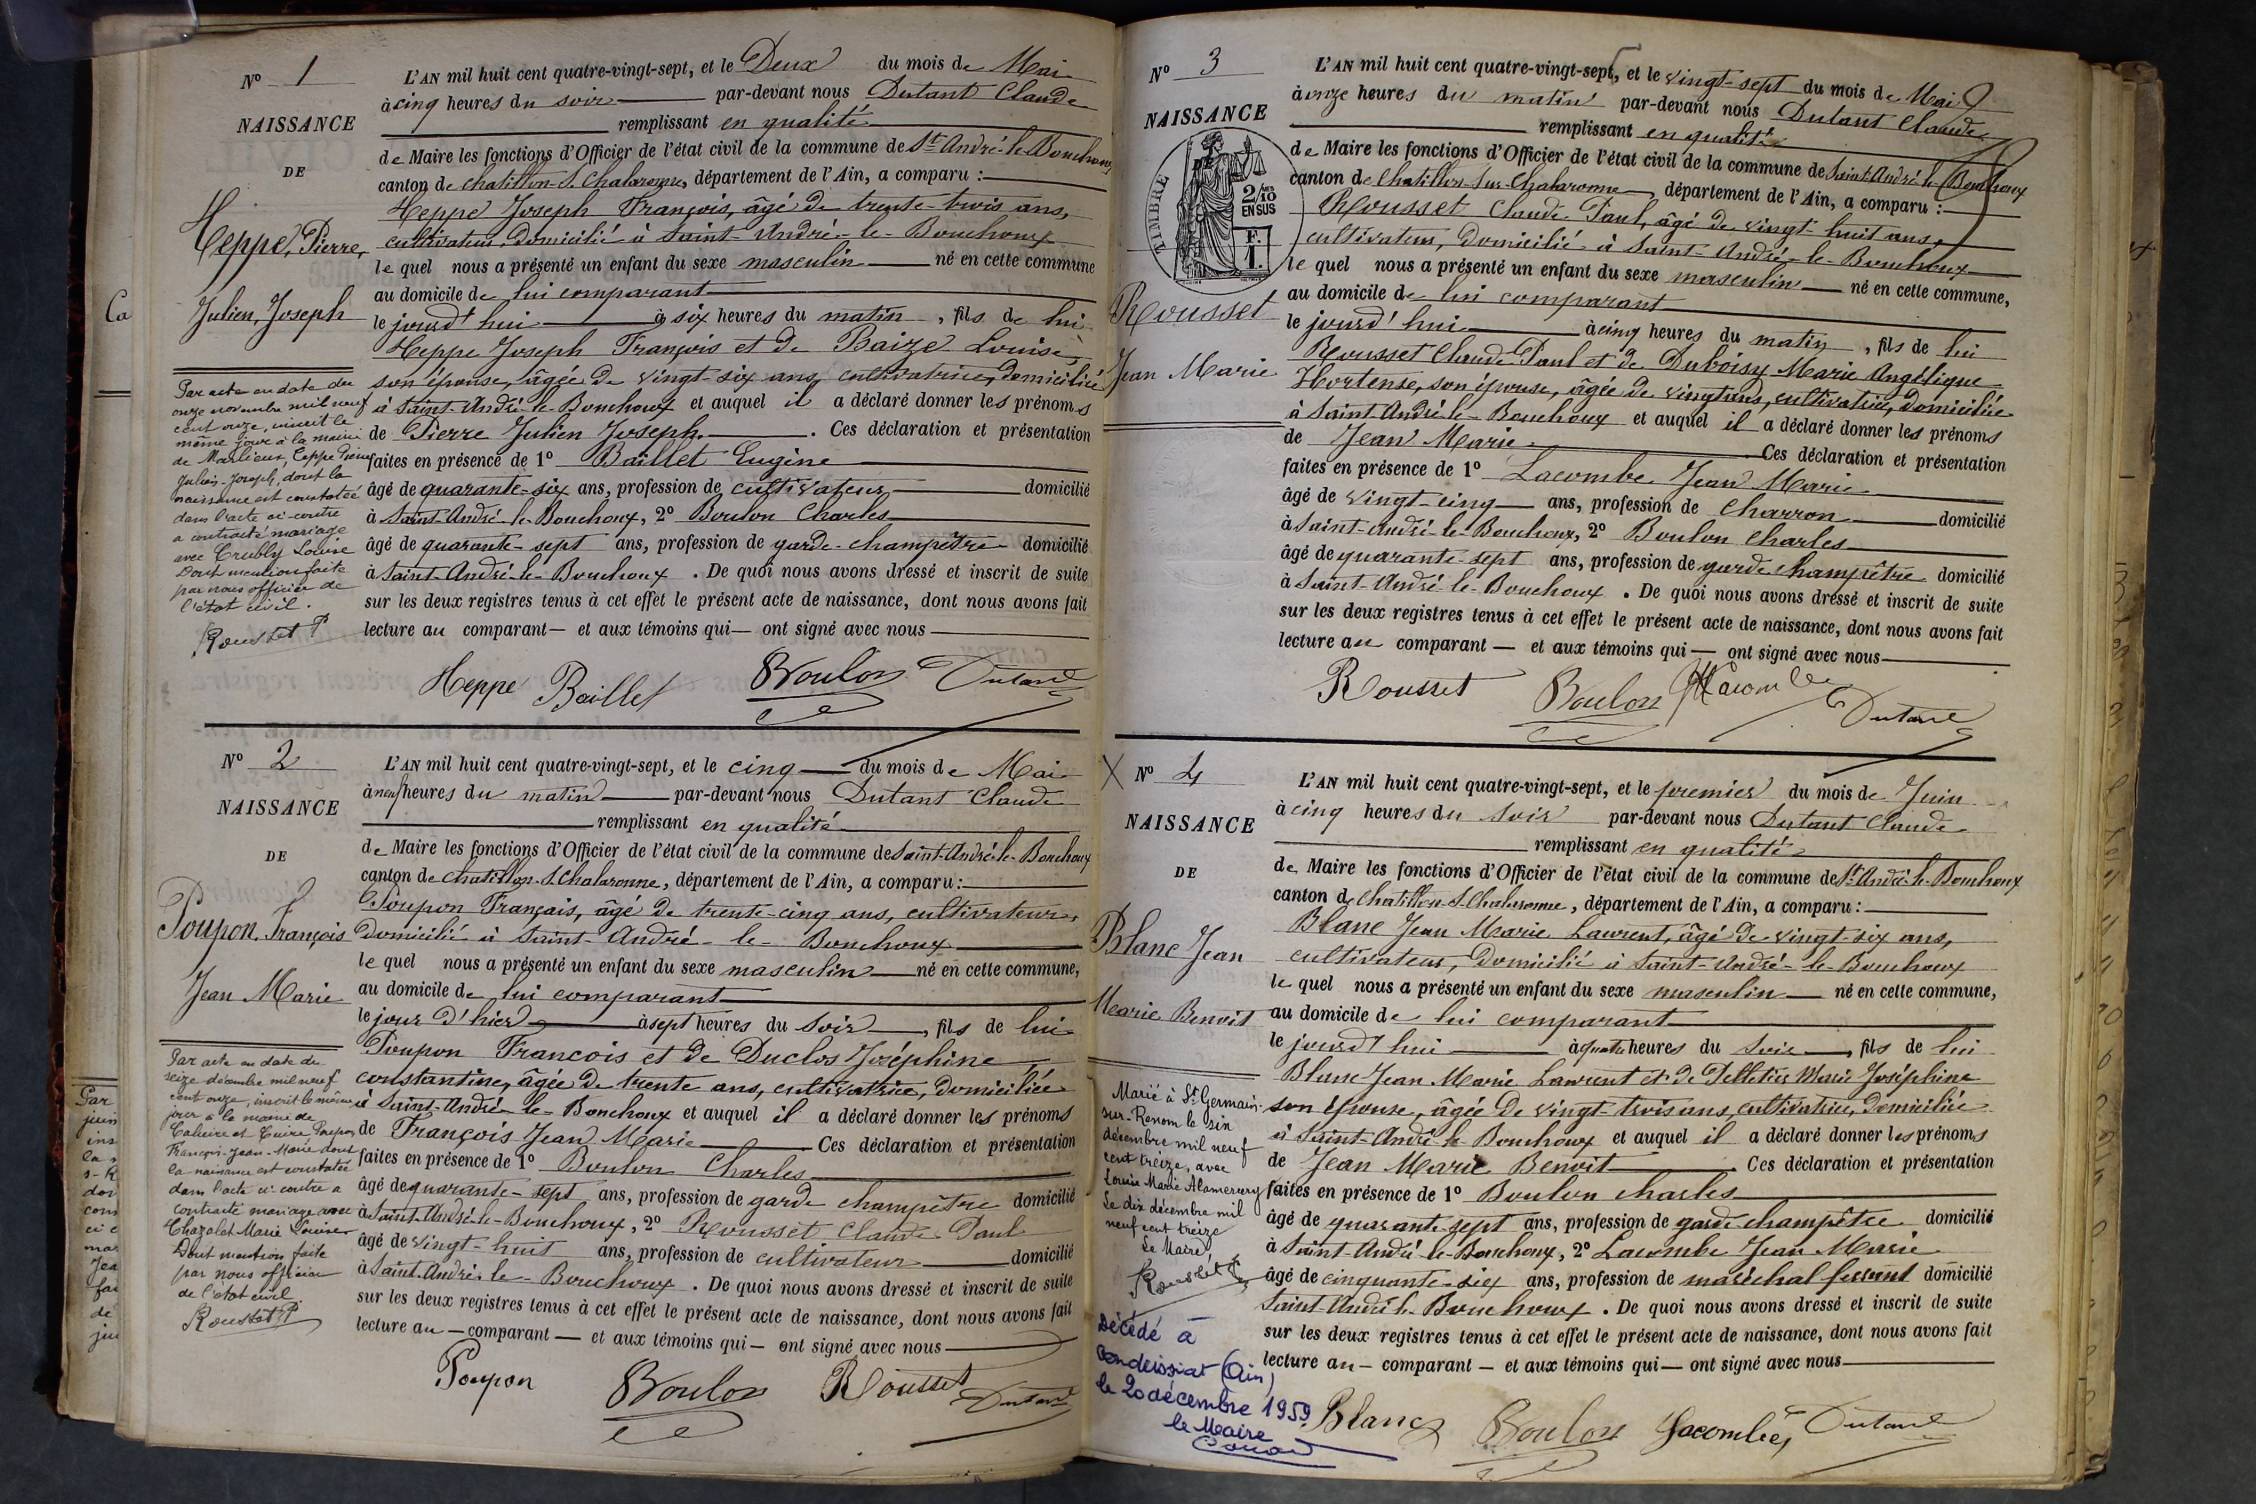 Nº 1
NAISSANCE
DE
Heppe, Pierre,
Julien, Joseph
L'AN mil huit cent quatre-vingt-sept, et le Deux du mois de Mai
à cinq heures du soir par-devant nous Dutant Claude
remplissant en qualité
de Maire les fonctions d'Officier de l'état civil de la commune de St André-le-Bouchoux
canton de Chatillon-S-Chalaronne, département de l'Ain, a comparu :
Heppe Joseph François, âgé de trente-trois ans,
cultivateur, domicilié à Saint-André-le-Bouchoux
lequel nous a présenté un enfant du sexe masculin né en cette commune
au domicile de lui comparant
le jourd'hui à six heures du matin, fils de lui
Heppe Joseph François et de Baize Louise,
son épouse, âgée de vingt-six ans, cultivatrice, domiciliée
à Saint-André-le-Bouchoux et auquel il a déclaré donner les prénoms
de Pierre Julien Joseph. Ces déclaration et présentation
faites en présence de 1º Baillet Eugène
âgé de quarante-six ans, profession de cultivateur domicilié
à Saint-André-le-Bouchoux, 2º Boulon Charles
âgé de quarante-sept ans, profession de garde-champêtre domicilié
à Saint-André-le-Bouchoux. De quoi nous avons dressé et inscrit de suite
sur les deux registres tenus à cet effet le présent acte de naissance, dont nous avons fait
lecture au comparant — et aux témoins qui — ont signé avec nous
Heppe Baillet Boulon Dutant
Par acte en date du
onze novembre mil neuf
cent onze, inscrit le
même jour à la mairie
de Marlieux, Heppe Pierre
Julien-Joseph, dont la
naissance est constatée
dans l'acte ci-contre
a contracté mariage
avec Louise
Dont mention faite
par nous officier de
l'état civil.
Rousset P
Nº 2
NAISSANCE
DE
Poupon, François
Jean Marie
L'AN mil huit cent quatre-vingt-sept, et le cinq du mois de Mai
à neuf heures du matin par-devant nous Dutant Claude
remplissant en qualité
de Maire les fonctions d'Officier de l'état civil de la commune de Saint-André-le-Bouchoux
canton de Chatillon-S-Chalaronne, département de l'Ain, a comparu :
Poupon François, âgé de trente-cinq ans, cultivateur,
domicilié à Saint-André-le-Bouchoux
lequel nous a présenté un enfant du sexe masculin né en cette commune,
au domicile de lui comparant
le jour d'hier à sept heures du soir, fils de lui
Poupon François et de Duclos Joséphine
constantine, âgée de trente ans, cultivatrice, domiciliée
à Saint-André-le-Bouchoux et auquel il a déclaré donner les prénoms
de François Jean Marie Ces déclaration et présentation
faites en présence de 1º Boulon Charles
âgé de quarante-sept ans, profession de garde champêtre domicilié
à Saint-André-le-Bouchoux, 2º Rousset Claude Paul
âgé de vingt-huit ans, profession de cultivateur domicilié
à Saint-André-le-Bouchoux. De quoi nous avons dressé et inscrit de suite
sur les deux registres tenus à cet effet le présent acte de naissance, dont nous avons fait
lecture au — comparant — et aux témoins qui — ont signé avec nous
Poupon Boulon Rousset Dutant
Par acte en date du
seize décembre mil neuf
cent onze, inscrit le même
jour à la mairie de
Caluire et Cuire, Poupon
François-Jean-Marie dont
la naissance est constatée
dans l'acte ci-contre a
contracté mariage avec
Chazolet Marie Louise
Dont mention faite
par nous officier
de l'état civil
Rousset P
Nº 3
NAISSANCE
TIMBRE
2/10
EN SUS
F.
1.
Rousset
Jean Marie
L'AN mil huit cent quatre-vingt-sept, et le vingt-sept du mois de Mai
à onze heures du matin par-devant nous Dutant Claude
remplissant en qualité
de Maire les fonctions d'Officier de l'état civil de la commune de Saint-André-le-Bouchoux
canton de Chatillon-sur-Chalaronne, département de l'Ain, a comparu :
Rousset Claude Paul, âgé de vingt-huit ans,
cultivateur, domicilié à Saint-André-le-Bouchoux
lequel nous a présenté un enfant du sexe masculin né en cette commune,
au domicile de lui comparant
le jourd'hui à cinq heures du matin, fils de lui
Rousset Claude Paul et de Duboisy Marie Angélique
Hortense, son épouse, âgée de vingt ans, cultivatrice, domiciliée
à Saint André le-Bouchoux et auquel il a déclaré donner les prénoms
de Jean Marie Ces déclaration et présentation
faites en présence de 1º Lacombe Jean Marie
âgé de vingt-cinq ans, profession de charron domicilié
à Saint-André-le-Bouchoux, 2º Boulon Charles
âgé de quarante-sept ans, profession de garde champêtre domicilié
à Saint-André-le-Bouchoux. De quoi nous avons dressé et inscrit de suite
sur les deux registres tenus à cet effet le présent acte de naissance, dont nous avons fait
lecture au comparant — et aux témoins qui — ont signé avec nous
Rousset Boulon Lacombe Dutant
X Nº 4
NAISSANCE
DE
Blanc Jean
Marie Benoit
L'AN mil huit cent quatre-vingt-sept, et le premier du mois de Juin
à cinq heures du soir par-devant nous Dutant Claude
remplissant en qualité
de Maire les fonctions d'Officier de l'état civil de la commune de St-André-le-Bouchoux
canton de Chatillon-S-Chalaronne, département de l'Ain, a comparu :
Blanc Jean Marie Laurent, âgé de vingt-six ans,
cultivateur, domicilié à Saint-André-le-Bouchoux
lequel nous a présenté un enfant du sexe masculin né en cette commune,
au domicile de lui comparant
le jourd'hui à quatre heures du soir, fils de lui
Blanc Jean Marie Laurent et de Pelletier Marie Joséphine
son épouse, âgée de vingt-trois ans, cultivatrice, domiciliée
à Saint-André-le-Bouchoux et auquel il a déclaré donner les prénoms
de Jean Marie Benoit Ces déclaration et présentation
faites en présence de 1º Boulon Charles
âgé de quarante-sept ans, profession de garde champêtre domicilié
à Saint-André-le-Bouchoux, 2º Lacombe Jean Marie
âgé de cinquante-six ans, profession de maréchal ferrant domicilié
Saint-André-le-Bouchoux. De quoi nous avons dressé et inscrit de suite
sur les deux registres tenus à cet effet le présent acte de naissance, dont nous avons fait
lecture au — comparant — et aux témoins qui — ont signé avec nous
Blanc Boulon Lacombe, Dutant
Marié à St Germain-
sur-Renom le six
décembre mil neuf
cent treize, avec
Louise Marie Alamercery
Le dix décembre mil
neuf cent treize
Le Maire
Rousset P
Décédé à
Condeissiat (Ain)
le 20 décembre 1959
le Maire